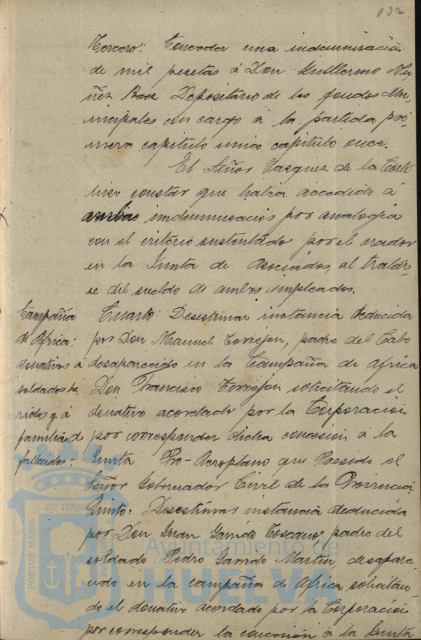 132
Tercero: Conceder una indemnización
de mil pesetas á Don Guillermo Mu-
ñez Báez Depositario de los fondos Mu-
nicipales con cargo á la partida pri-
mera capitulo unico capitulo once.
El Señor Vazquez de la Corte
hizo constar que había accedido á
ambas indemnizacios por analogia
con el criterio sustentado por el orador
en la Junta de Asociados al tratar-
se del sueldo de ambos empleados.
Campaña
de Africa:
donativos á
soldados he
ridos y á
familia de
fallecidos:
Cuarto: Desestimar instancia deducida
por Don Manuel Torrejon, padre del Cabo
desaparecido en la Campaña de Africa
Don Francisco Torrejon solicitando el
donativo acordado por la Corporacion
por corresponder dicha concesion á la
Junta Pro-Aeroplano que Preside el
Señor Gobernador Civil de la Provincia
Quinto: Desestimar instancia deducida
por Don Juan Garrido Toscano, padre del
soldado Pedro Garrido Martin, desapare-
cido en la campaña de Africa, solicitan-
do el donativo acordado por la Corporacion
por corresponder la concesion á la Junta
PORTUS MARIS ET TERRAE
Ayuntamiento de
HUELVA